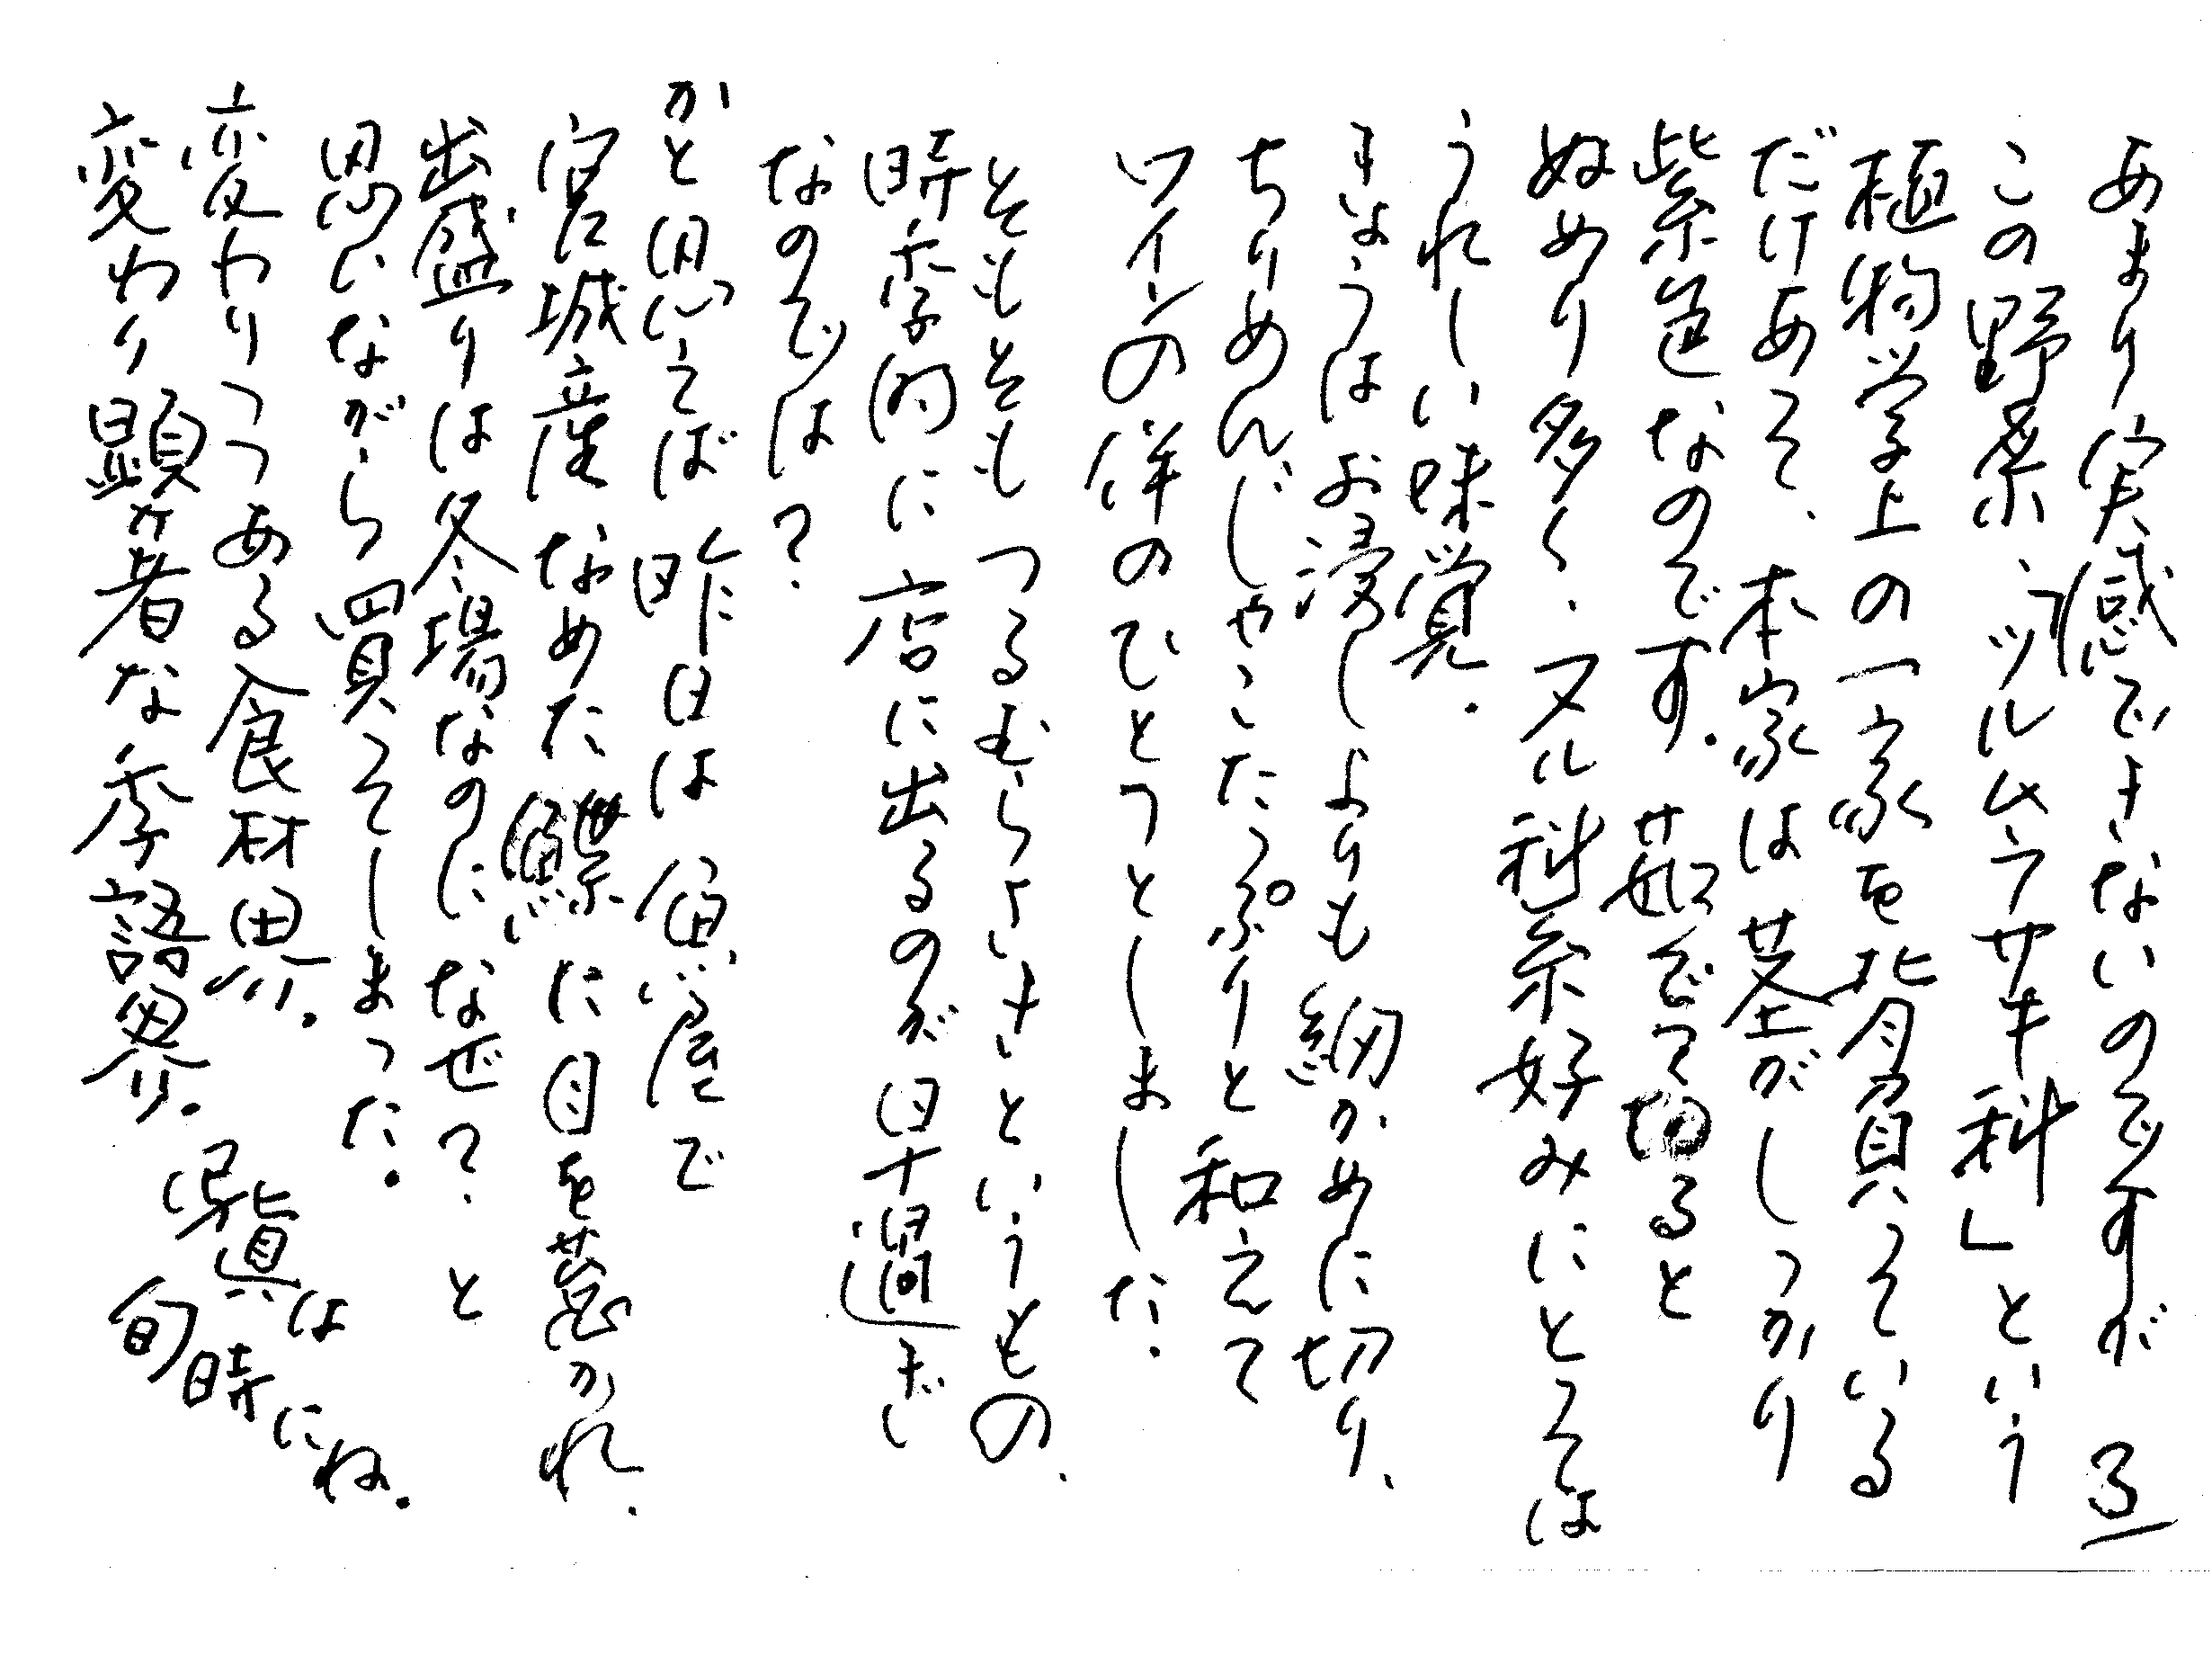 あまり実感できないのですが 3
この野菜、「ツルムラサキ科」という
植物学上の一家を背負っている
だけあって、本家は茎がしっかり
紫色なのです。茹でて切ると
ぬめり多く、ヌル科系好みにとっては
うれしい味覚。
きょうはお浸しよりも細かめに切り、
ちりめんじゃこたっぷりと和えて
ワインの伴のひとつとしました。
そもそもつるむらさきというもの、
時季的に店に出るのが早過ぎ
なのでは?
かと思えば昨日は魚屋で
宮城産なめた鰈に目を惹かれ、
出盛りは冬場なのになぜ?と
思いながら買ってしまった。
変わりつつある食材界。
変わり顕著な季語界。
写真は
旬時にね。